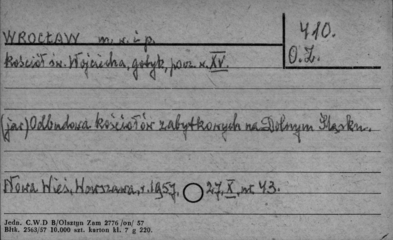 WROCŁAW m. w. i p.
410.
O.Z.
kościół św. Wojciecha, gotyk, pocz. w. XV.
(jac) Odbudowa kościołów zabytkowych na Dolnym Śląsku.
Nowa Wieś, Warszawa, r. 1957, 27, X, nr 43.
Jedn. C.W.D B/Olsztyn Zam 2776/on/ 57
Bltk. 2563/57 10.000 szt. karton kl. 7 g 220.